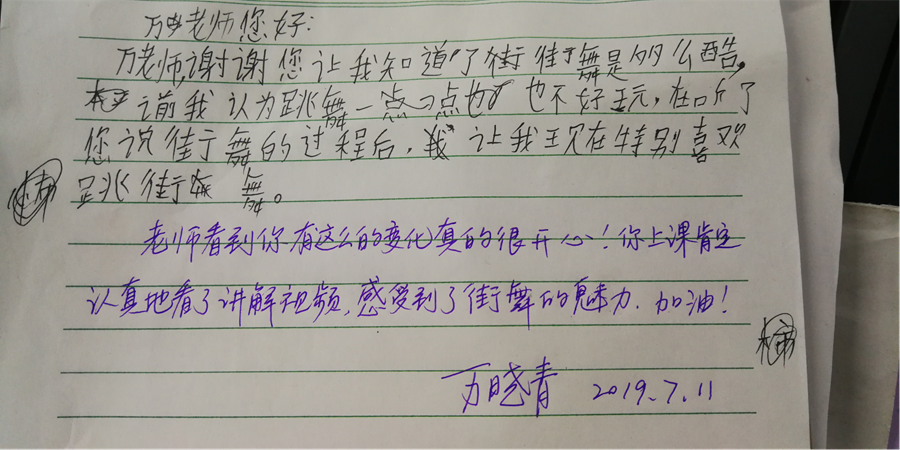 万老师您好：
万老师，谢谢您让我知道了街街舞是的么酷。
之前我认为跳舞一点一点也也不好玩，在听了
您说街舞的过程后，让我现在特别喜欢
跳街舞。
老师看到你有这么的变化真的很开心！你上课肯定
认真地看了讲解视频，感受到了街舞的魅力．加油！
万晓青 2019.7.11